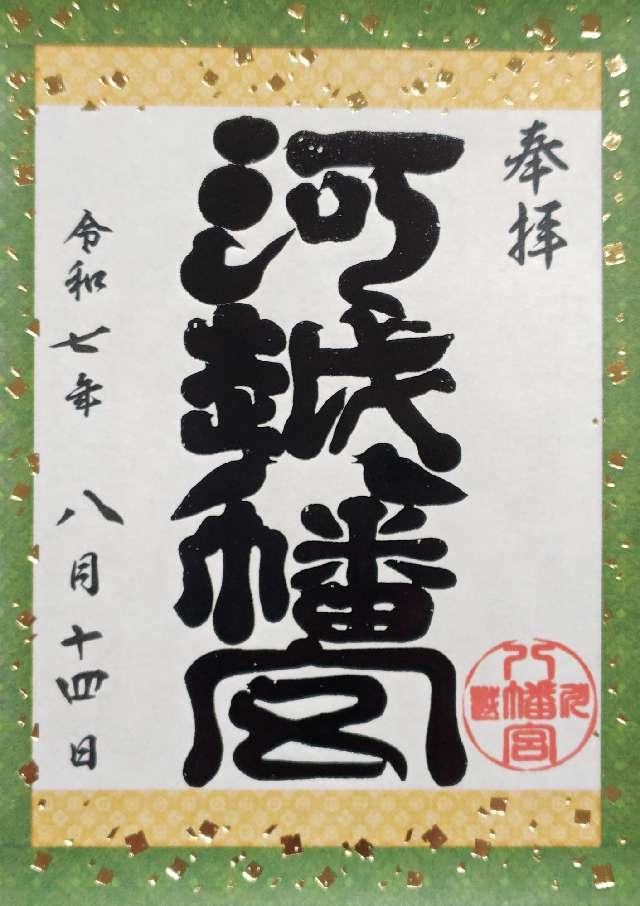 奉拝
河越八幡宮
令和七年 八月十四日
八幡宮